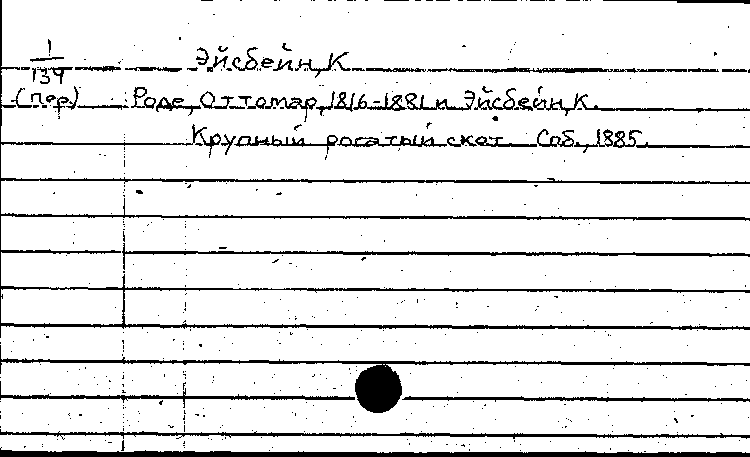 1
139
Эйсбейн, К
(пер)
Роде, Оттомар, 1816-1881 и Эйсбейн, К.
Крупный рогатый скот. Спб., 1885.